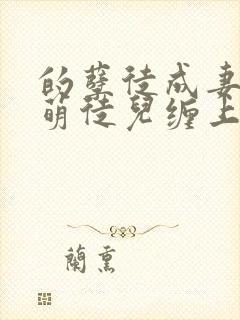 的孽徒成妻
萌徒儿缠上
蘭熏